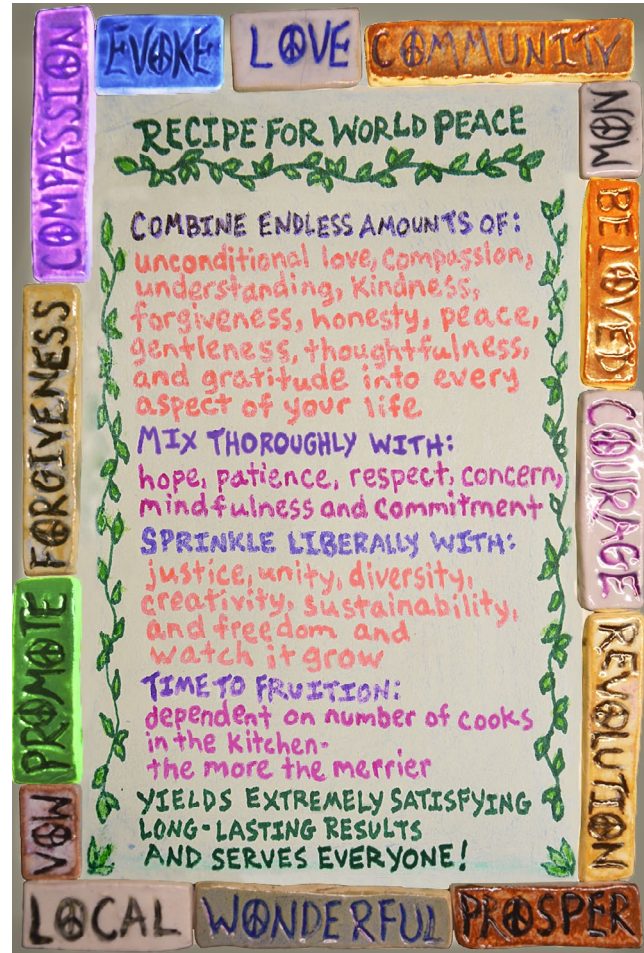 EVOKE
LOVE
COMMUNITY
NOW
BELOVED
COURAGE
REVOLUTION
PROSPER
WONDERFUL
LOCAL
VOW
PROMOTE
FORGIVENESS
COMPASSION
RECIPE FOR WORLD PEACE
COMBINE ENDLESS AMOUNTS OF:
unconditional love, compassion,
understanding, kindness,
forgiveness, honesty, peace,
gentleness, thoughtfulness,
and gratitude into every
aspect of your life
MIX THOROUGHLY WITH:
hope, patience, respect, concern,
mindfulness and commitment
SPRINKLE LIBERALLY WITH:
justice, unity, diversity,
creativity, sustainability,
and freedom and
watch it grow
TIME TO FRUITION:
dependent on number of cooks
in the kitchen-
the more the merrier
YIELDS EXTREMELY SATISFYING
LONG-LASTING RESULTS
AND SERVES EVERYONE!